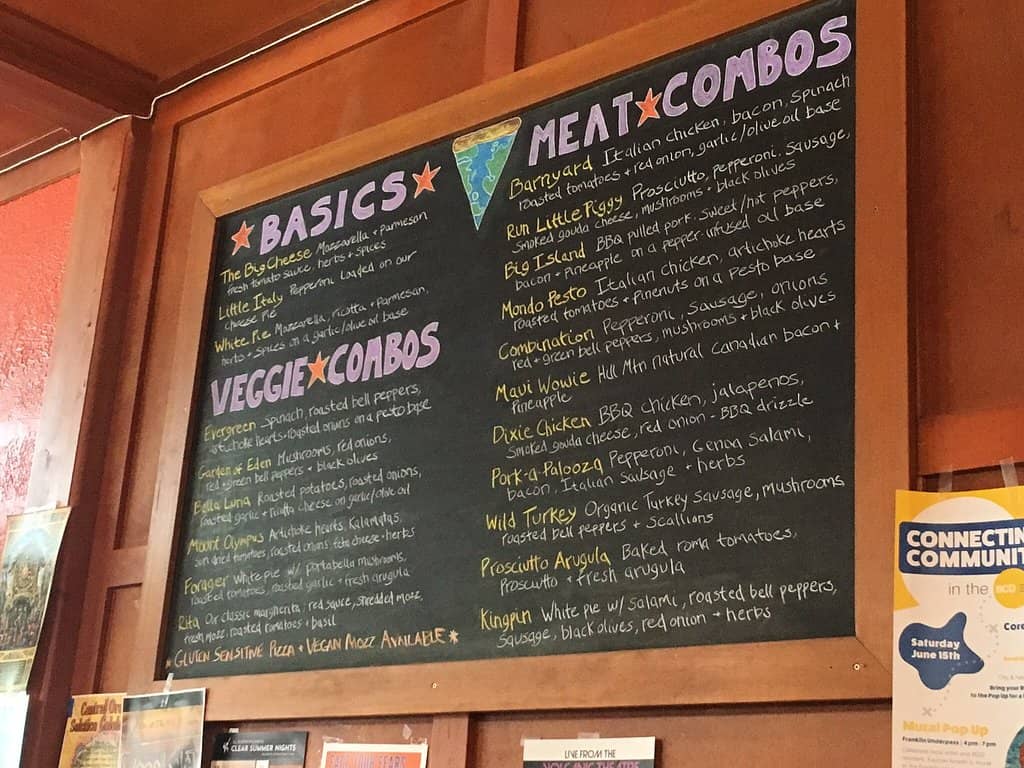 ★ BASICS ★
The Big Cheese Mozzarella + Parmesan
fresh tomato sauce, herbs + spices
Little Italy Pepperoni Loaded on our
cheese Pie
White Pie Mozzarella, ricotta + Parmesan,
herbs + spices on a garlic/olive oil base
VEGGIE ★ COMBOS
Evergreen Spinach, roasted bell peppers,
artichoke hearts + roasted onions on a pesto base
Garden of Eden Mushrooms, red onions,
red + green bell peppers + black olives
Bella Luna Roasted potatoes, roasted onions,
roasted garlic + ricotta cheese on garlic/olive oil
Mount Olympus Artichoke hearts, Kalamatas,
sun dried tomatoes, roasted onions, feta cheese + herbs
Forager White pie w/ portabella mushrooms,
roasted tomatoes, roasted garlic + fresh arugula
Rita Our classic margherita, red sauce, shredded mozz,
fresh mozz, roasted tomatoes + basil
* GLUTEN SENSITIVE PIZZA + VEGAN MOZZ AVAILABLE *
MEAT ★ COMBOS
Barnyard Italian chicken, bacon, spinach
roasted tomatoes + red onion, garlic/olive oil base
Run Little Piggy Prosciutto, pepperoni, sausage,
smoked gouda cheese, mushrooms + black olives
Big Island BBQ pulled pork, sweet/hot peppers,
bacon + pineapple on a pepper-infused oil base
Mondo Pesto Italian chicken, artichoke hearts
roasted tomatoes + pinenuts on a pesto base
Combination Pepperoni, sausage, onions
red + green bell peppers, mushrooms + black olives
Maui Wowie Hill Mtn natural Canadian bacon +
Pineapple
Dixie Chicken BBQ chicken, jalapenos,
smoked gouda cheese, red onion - BBQ drizzle
Pork-a-Palooza Pepperoni, Genoa Salami,
bacon, Italian sausage + herbs
Wild Turkey Organic Turkey sausage, mushrooms
roasted bell peppers + scallions
Prosciutto Arugula Baked roma tomatoes,
Prosciutto + fresh arugula
Kingpin White pie w/ salami, roasted bell peppers,
Sausage, black olives, red onion + herbs
CONNECTIN
COMMUNIT
in the
Saturday
June 15th
Core
Bring your
to the Pop Up for a
Mural Pop Up
Franklin Underpass | 4 pm - 7 pm
CLEAR SUMMER NIGHTS
LIVE FROM THE
VOLCANIC THEATRE